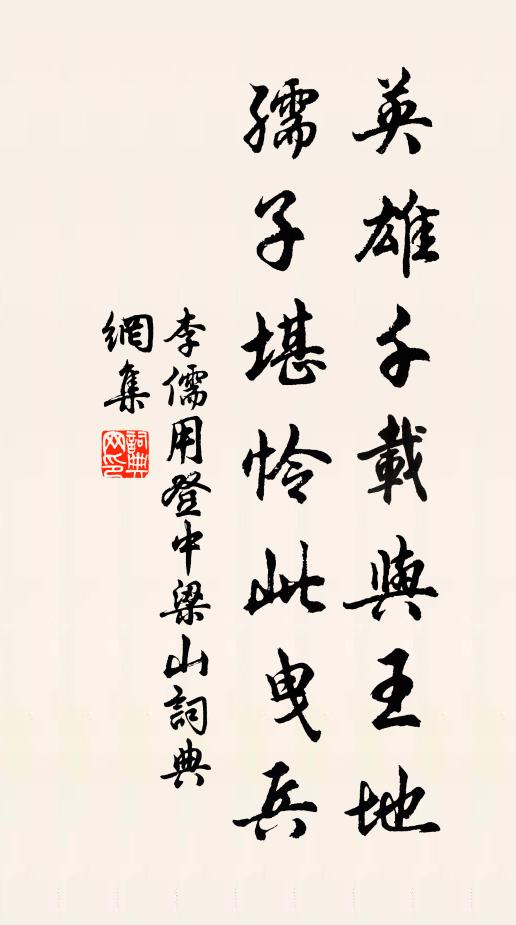 英雄千載興王地
孺子堪怜此曳兵
李儒用登中梁山詞典
網集
詞典
网印